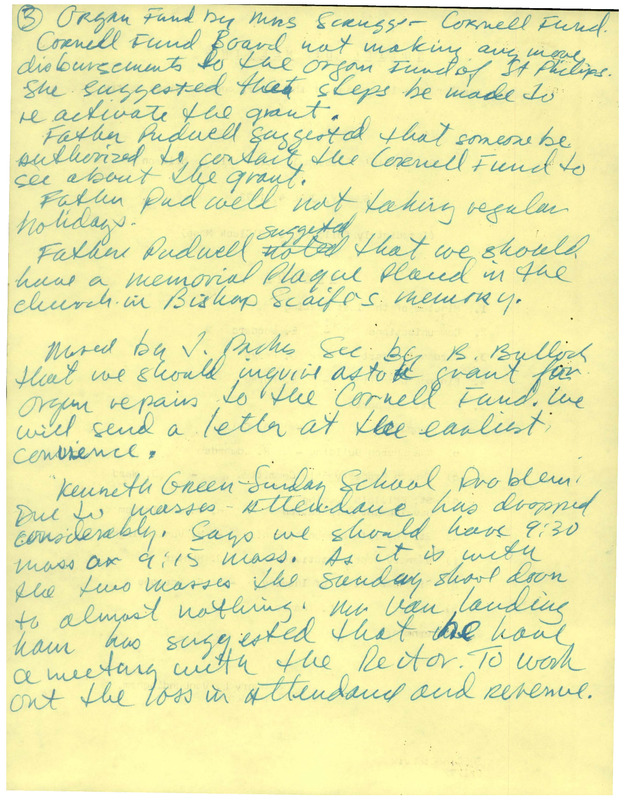 ③ Organ Fund by Mrs Scruggs - Cornell Fund.
Cornell Fund Board not making any more
disbursements to the Organ Fund of St Philips.
She suggested that steps be made to
re activate the grant.
Father Pudwell suggested that someone be
authorized to contact the Cornell Fund to
see about the grant.
Father Pudwell not taking regular
holidays.
Father Pudwell noted suggested that we should
have a memorial Plaque placed in the
church in Bishop Scaife's memory.
Moved by J. Sec by B. Bulloch
that we should inquire as to a grant for
organ repairs to the Cornell Fund. We
will send a letter at the earliest
convience.
Kenneth Green - Sunday School Problem.
Due to masses - attendance has dropped
considerably. Says we should have 9:30
mass or 9:15 mass. As it is with
the two masses the Sunday shool down
to almost nothing. Mr Van Landing
ham has suggested that he have
a meeting with the Rector. To work
out the loss in attendance and revenue.